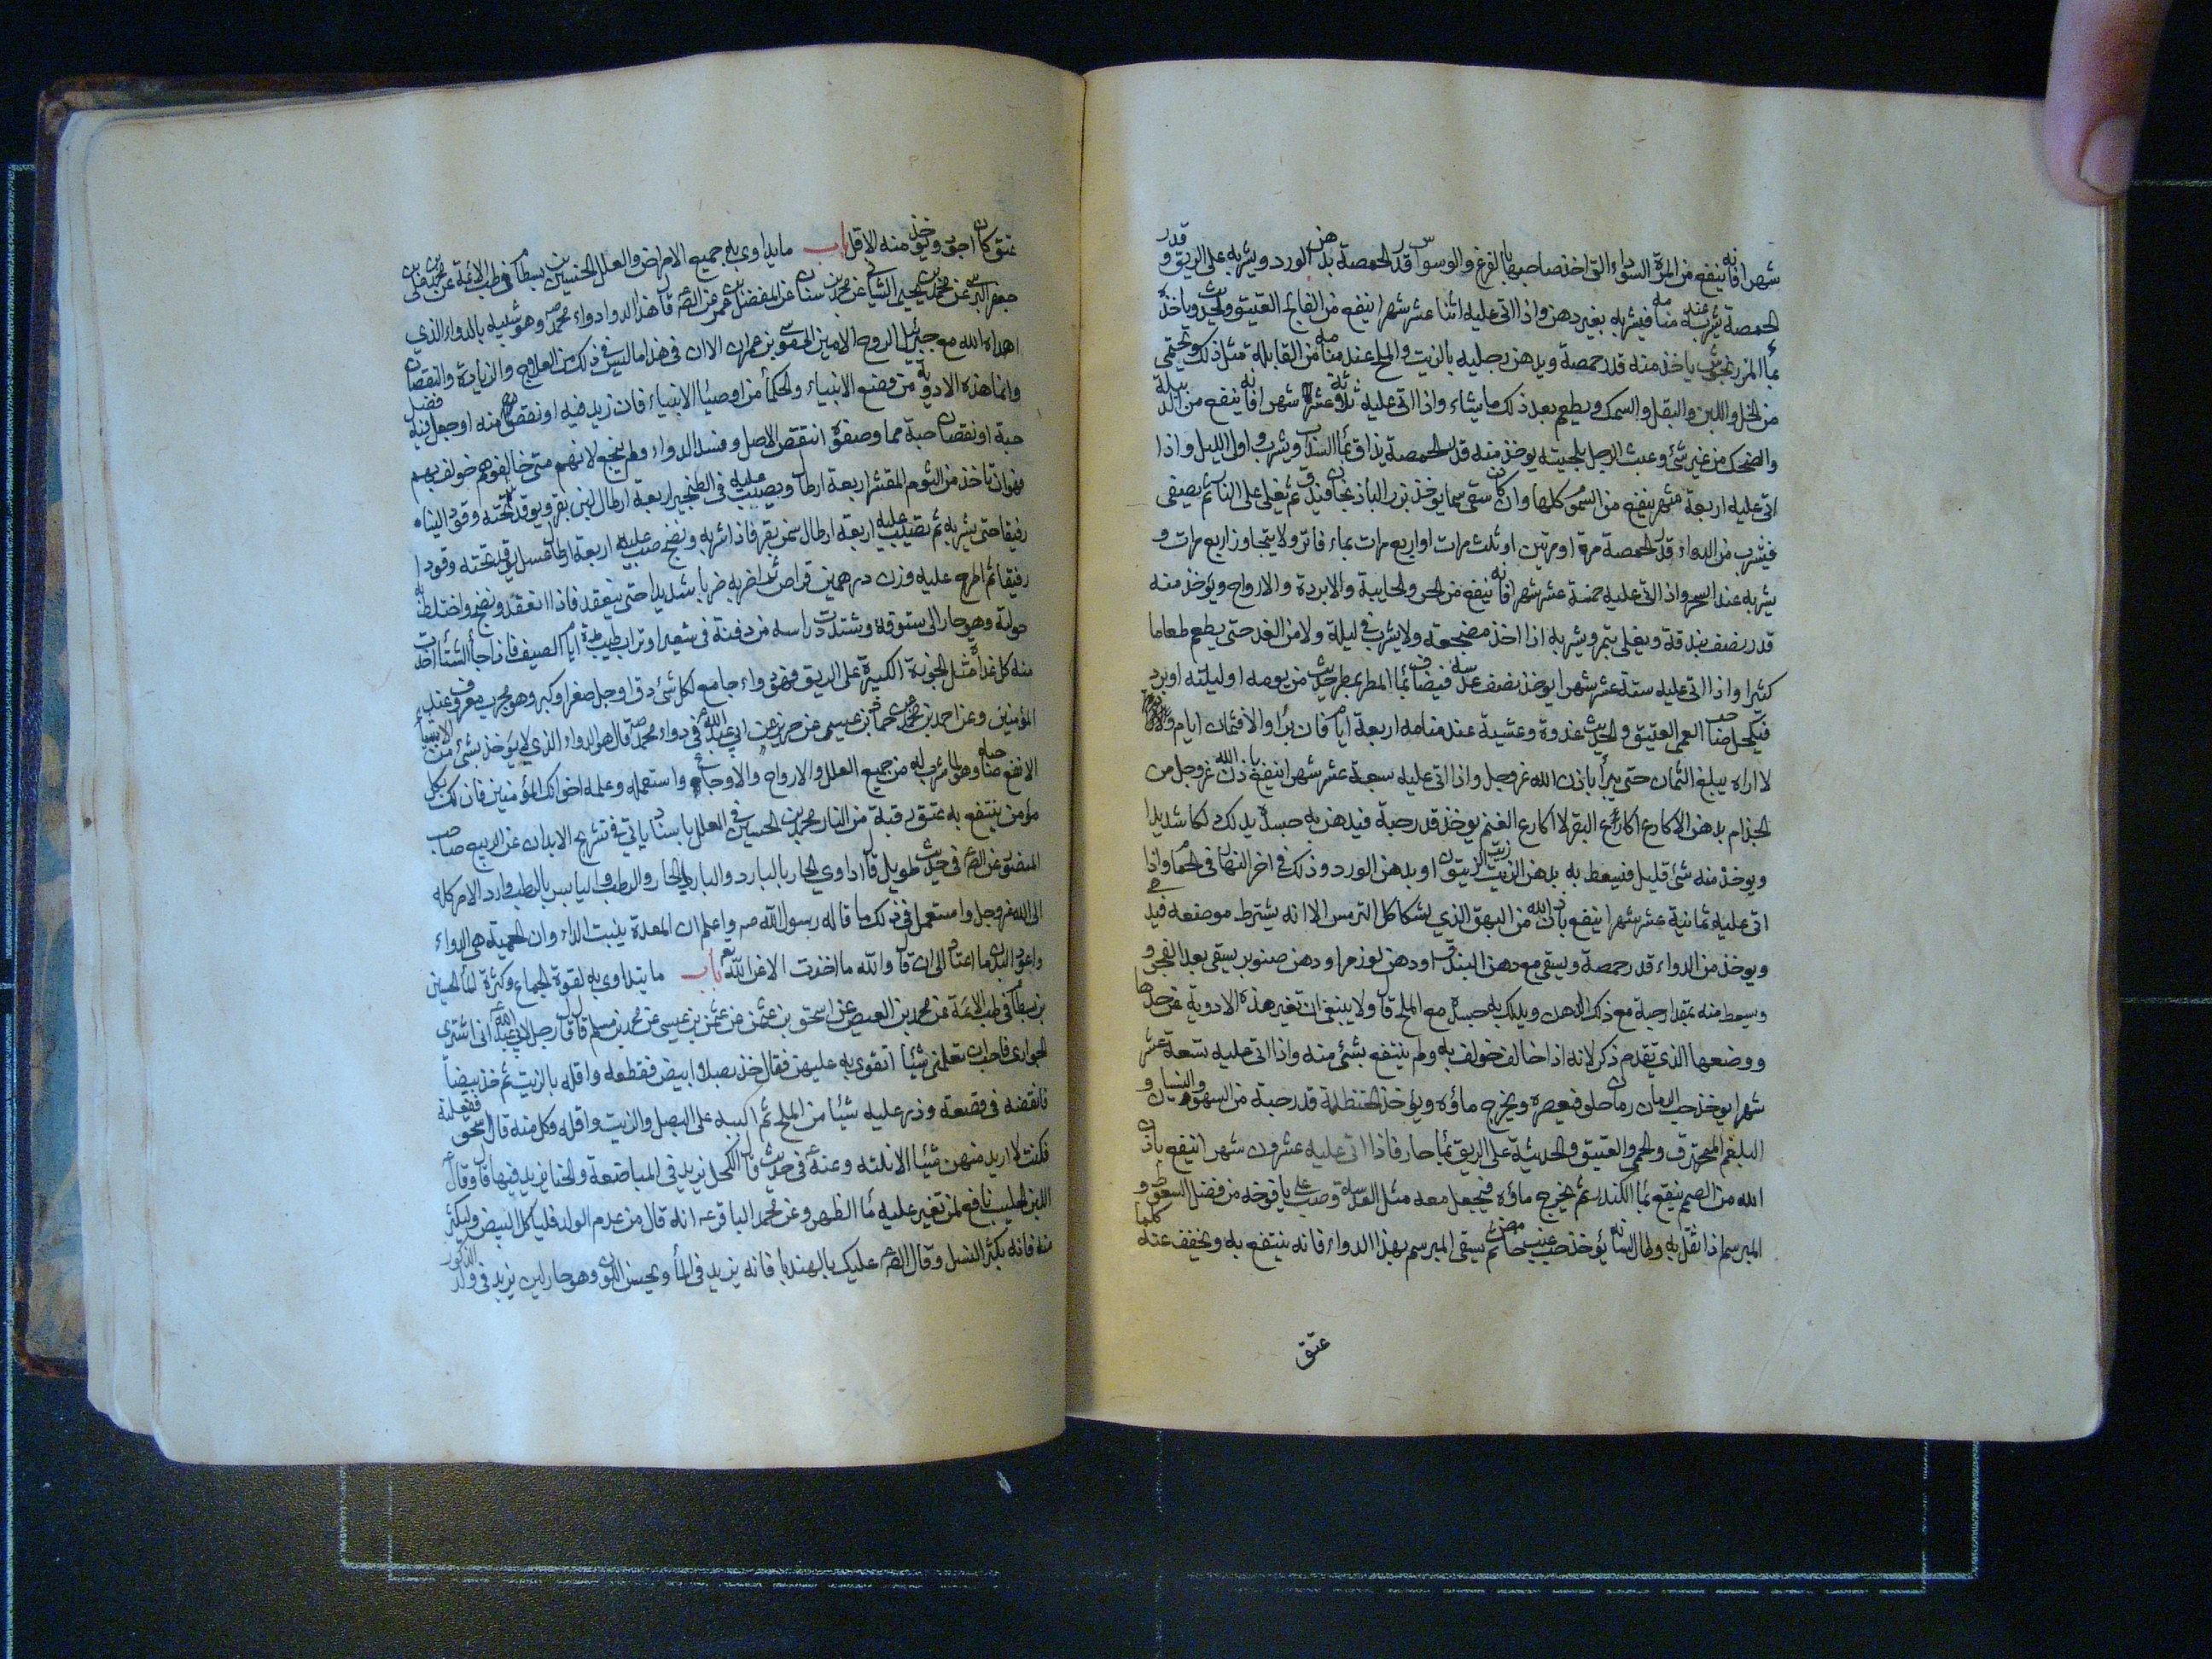 شهرا فانه ينفع من المرة السوداء التى اخذ صاحبها بالفزع والوسواس قدر الحمصة بدهن الورد ويشربه على الريق وقدر
الحمصة يشربه عند منامه فيشربه بغير دهن واذا اتى عليه اثنا عشر شهرا ينفع من الفالج العتيق والحديث وياخذه
بماء المرزنجوش ياخذ منه قدر حمصة ويدهن رجليه بالزيت والملح عند منامه من القابلة مثل ذلك ويحتمى
من الخل واللبن والبقل والسمك ويطعم بعد ذلك ما يشاء واذا اتى عليه ثلاثة عشر شهرا فانه ينفع من الدبيلة
والضحك من غير شئ وعبث الرجل بلحيته يوخذ منه قدر الحمصة يذاق بماء السداب ويشرب اول الليل واذا
اتى عليه اربعة عشر ينفع من السموم كلها وان كان سقى سما يوخذ بزر الباذنجان فيدق ثم يغلى على النار ثم يصفى
فيشرب من الدواء قدر الحمصة مرة او مرتين او ثلث مرات او اربع مرات بماء فاتر ولا يتجاوز اربع مرات و
يشربه عند السحر واذا اتى عليه خمسة عشر شهرا فانه ينفع من السحر والخابية والابردة والارواح ويوخذ منه
قدر نصف بندقة ويغلى بتمر ويشربه اذا اخذ مضجعه ولا يشرب فى ليلة ولا من الغد حتى يطعم طعاما
كثيرا واذا اتى عليه ستة عشر شهرا يوخذ نصف عدسه فيضاف بماء المطر بمطر حديث من يومه او ليلته او برد
فيكحل صاحب العمى العتيق والحديث غدوة وعشية عند منامه اربعة ايام فان برا والا فثمان ايام
لا اراه يبلغ الثمان حتى يبرأ باذن الله عز وجل واذا اتى عليه سبعة عشر شهرا ينفع باذن الله عز وجل من
الجذام بدهن الاكارع اكارع البقر لا اكارع الغنم يوخذ قدر حبة فيدهن به جسده يدلك دلكا شديدا
ويوخذ منه شئ قليل فيسعط به بدهن الزيت زيت الزيتون او بدهن الورد وذلك فى اخر النهار فى الحمام واذا
اتى عليه ثمانية عشر شهرا ينفع باذن الله من البهق الذي يشاكل الترمس الا انه يشترط موضعه فيد
ويوخذ من الدواء قدر حمصة ويسقى مع دهن البندق او دهن لوز مر او دهن صنوبر يسقى بعد الفجر و
ويسعط منه بمقدار حبة مع ذلك الدهن ويدلك به جسده مع الملح قال ولا ينبغى ان تغير هذه الادوية عن حدها
ووضعها الذي تقدم ذكر لانه اذا خالف خولف به ولم ينتفع بشئ منه واذا اتى عليه تسعة عشر
شهرا يوخذ حب الرمان رمان حلو فيعصره ويخرج ماؤه ويؤخذ الحنظلة قدر حبة من السهو والنسيان و
البلغم المحترق والحمى والعتيق والحديثة على الريق بماء حار فاذا اتى عليه عشرون شهرا ينفع باذن
الله من الصمم ينقع بماء الكندر ثم يخرج ماؤه فيجعل معه مثل العدسة وصب على يافوخه من فضل السعوط و
المبرسم اذا ثقل به وطال لسانه يؤخذ حب عنب حامض ثم يسقى المبرسم بهذا الدواء فانه ينتفع به ويخفف عنه كلما
عتق
عتق كان اجود ويوخذ منه الاقل باب ما يداوى به جميع الامراض والعلل الحسين بن بسطام فى طب الائمة عن محمد بن
جعفر البرسى عن محمد بن يحيى عن محمد بن سنان عن المفضل بن عمر عن قال هذا الدوا دواء محمد وهو شبيه بالدواء الذي
اهداه الله مع جبرئيل الروح الامين الى موسى بن عمران الا ان فى هذا ما ليس فى ذلك من العلاج والزيادة والنقصان
وانما هذه الادوية من وضع الانبياء والحكماء من اوصياء الانبياء فان زيد فيه او نقص منه او جعل فيه فضل
حبة او نقصان حبة مما وصفوه انتقض الاصل وفسد الدواء ولم ينجع لانهم متى خالفوهم خولف بهم
فهو ان تاخذ من الثوم المقشر اربعة ارطال ويصب عليه فى الطنجير اربعة ارطال لبن بقر ويوقد تحته وقودا لينا
رفيقا حتى يشربه ثم يصب عليه اربعة ارطال سمن بقر فاذا شربه ونضج صب عليه اربعة ارطال عسل ثم يوقد تحته وقودا
رفيقا ثم اطرح عليه وزن درهمين قراصا ثم اضربه ضربا شديدا حتى ينعقد فاذا انعقد ونضج واختلط به
حولته وهو حار الى بستوقة وتشد راسه من دفنه فى شعير او تراب طيب مدة ايام الصيف فاذا جاء الشتاء اخذت
منه كل غداة مثل الجوزة الكبيرة على الريق فهو دواء جامع لكل شئ دق او جل صغر او كبر وهو مجرب معروف عند
المؤمنين وعن احمد بن محمد عن حماد بن عيسى عن حريز عن ابي عبد الله فى دواء محمد قال هو الدواء الذي لا يوخذ بشئ من الاشياء
الا نفع صاحبه وهو لما شرب له من جميع العلل والارواح والاوجاع واستعمله وعلمه اخوانك المؤمنين فان لك بكل
مؤمن ينتفع به عتق رقبة من النار محمد بن الحسين فى العلل باسناد ياتى فى تشريح الابدان عن الربيع صاحب
المنصور عن فى حديث طويل قال اداوي الحار بالبارد والبارد بالحار والرطب باليابس واليابس بالرطب وارد الامر كله
الى الله عز وجل واستعمل فى ذلك ما قاله رسول الله ص واعلم ان المعدة بيت الداء وان الحمية هى الدواء
واعود البدن ما اعتاد الى ان قال والله ما اخذت الا عن الله باب ما يتداوى به لقوة الجماع وكثرة الماء الحسين
بن بسطام فى طب الائمة عن محمد بن العيص عن اسحق بن عثمن عن عثمن بن عيسى عن محمد بن مسلم قال قال رجل لابى عبد الله انى اشترى
الجوارى فاحب ان تعلمنى شيئا اتقوى به عليهن فقال خذ بصلا ابيض فقطعه واقله بالزيت ثم خذ بيضا
فانفضه فى قصعة وذر عليه شيئا من الملح ثم اكببه على البصل والزيت واقله وكل منه قال اسحق ففعلته
فكنت لا اريد منهن شيئا الا نلته وعنه فى حديث قال الكحل يزيد فى المباضعة والحنا يزيد فيها قال وقال
اللبن الحليب نافع لمن تغير عليه ماء الظهر وعن محمد الباقر انه قال من عدم الولد فلياكل البيض وليكثر
منه فانه يكثر النسل وقال عليك بالهندبا فانه يزيد فى الماء ويحسن اللون وهو حار لين يزيد فى ولد الذكور